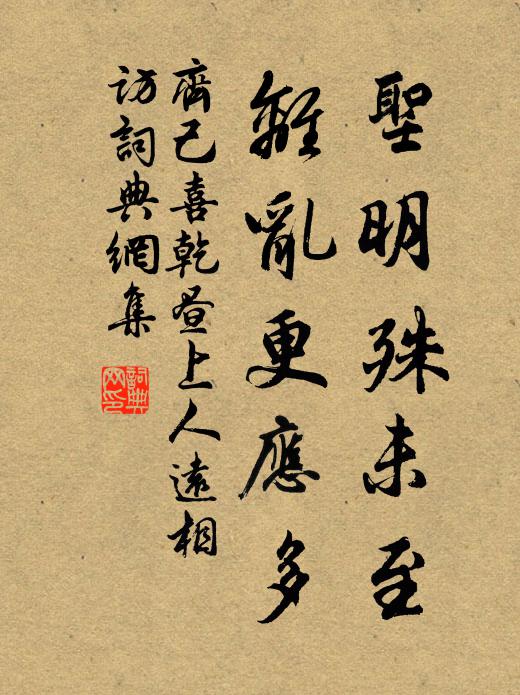 聖明殊未至
離亂更應多
齊己喜乾晝上人遠相
訪詞典網集
詞典
网印